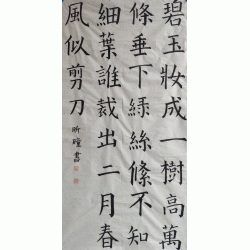 碧玉妝成一樹高萬
條垂下綠絲絛不知
細葉誰裁出二月春
風似剪刀
書